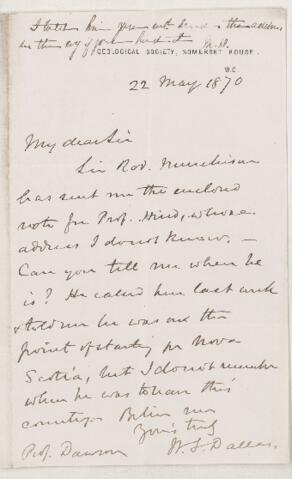 I told him you
in the
GEOLOGICAL SOCIETY, SOMERSET HOUSE.
W.C.
22 May 1870
My dear Sir
Sir Rod. Murchison
has sent me the enclosed
note for Prof. Hind, whose
address I do not know. –
Can you tell me where he
is? He called here last week
& told me he was on the
point of starting for Nova
Scotia, but I do not remember
when he was to leave this
country. Believe me
Yours truly
Prof. Dawson W. S. Dallas.